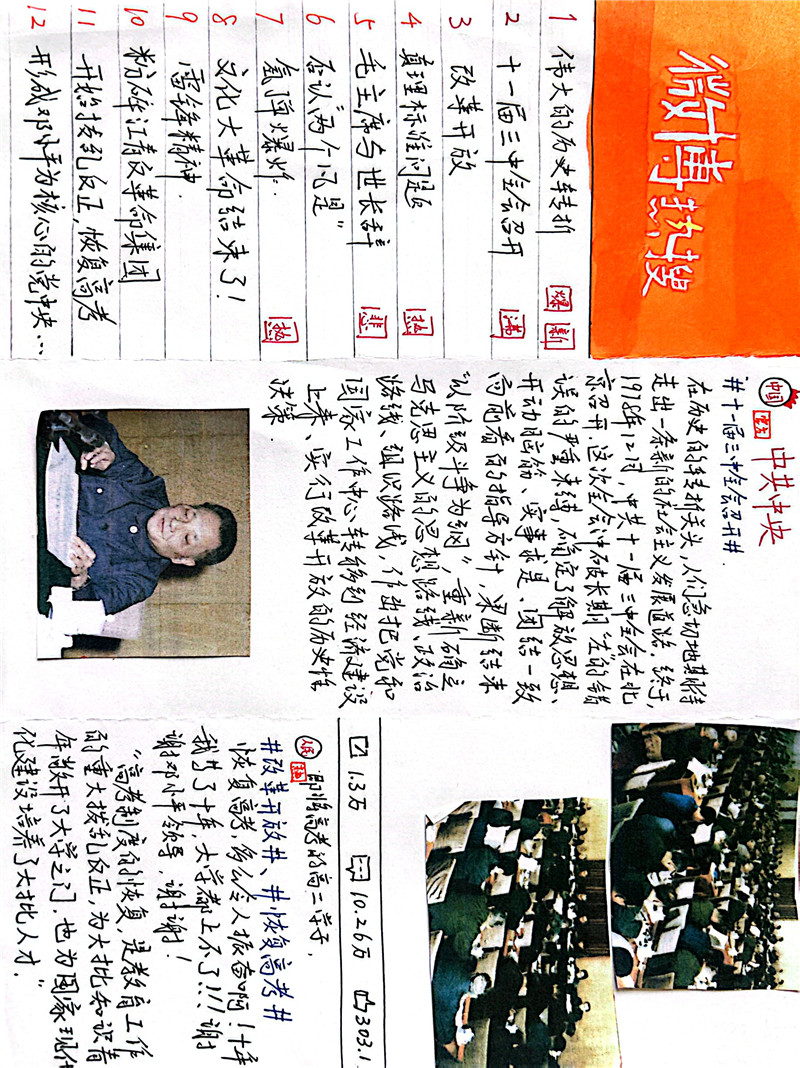 微博热搜
1 伟大的历史转折 爆 新
2 十一届三中全会召开 沸
3 改革开放
4 真理标准问题 热
5 毛主席与世长辞 悲
6 否认“两个凡是”
7 氢弹爆炸. 热
8 文化大革命结束了!
9 雷锋精神.
10 粉碎江青反革命集团
11 开始拨乱反正,恢复高考
12 形成邓小平为核心的党中央…
中国 官方 中共中央
#十一届三中全会召开#.
在历史的转折关头,人们急切地期待
走出一条新的社会主义发展道路.终于,
1978年12月,中共十一届三中全会在北
京召开.这次全会冲破长期“左”的错
误的严重束缚,确定了解放思想、
开动脑筋、实事求是、团结一致
向前看的指导方针,果断结束
“以阶级斗争为纲”,重新确立
马克思主义的思想路线、政治
路线、组织路线,作出把党和
国家工作中心转移到经济建设
上来、实行改革开放的历史性
决策.
1.3万 10.26万 303.1
人民 即将高考的高二学子.
#改革开放#、#恢复高考#
恢复高考,多么令人振奋啊!十年
我等了十年,大学都上不了!!!谢
谢邓小平领导,谢谢!
“高考制度的恢复,是教育工作
的重大拨乱反正,为大批知识青
年敞开了大学之门,也为国家现代
化建设培养了大批人才.”